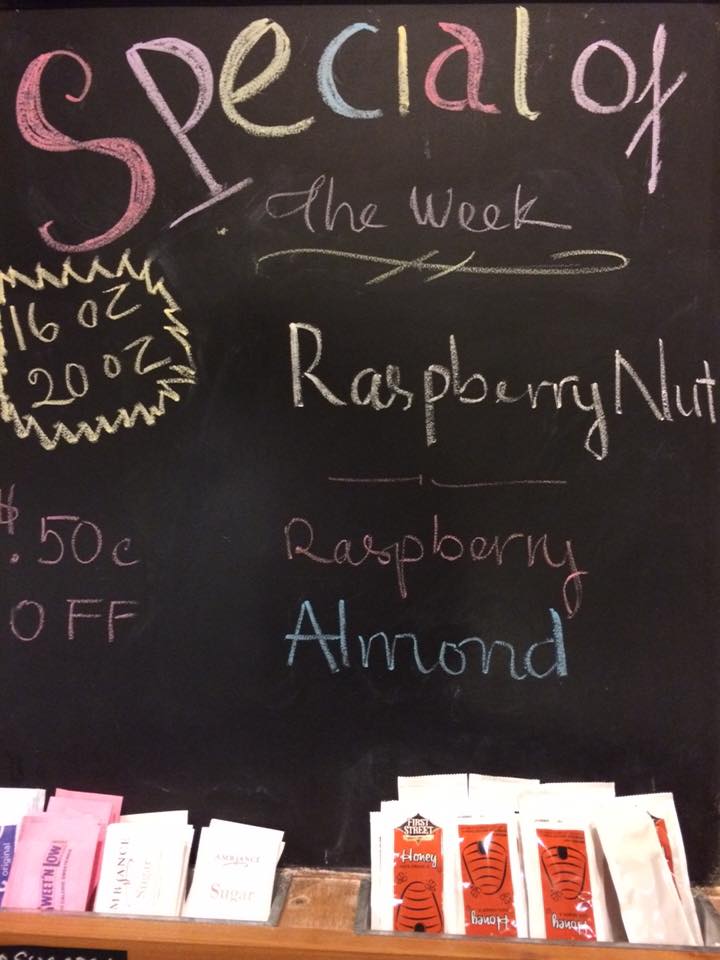 Special of
The Week
16 oz
20 oz
Raspberry Nut
$.50c
OFF
Raspberry
Almond
original
SWEET'N LOW
AMBIANCE
Sugar
AMBIANCE
Sugar
FIRST
STREET
Honey
Honey
Honey